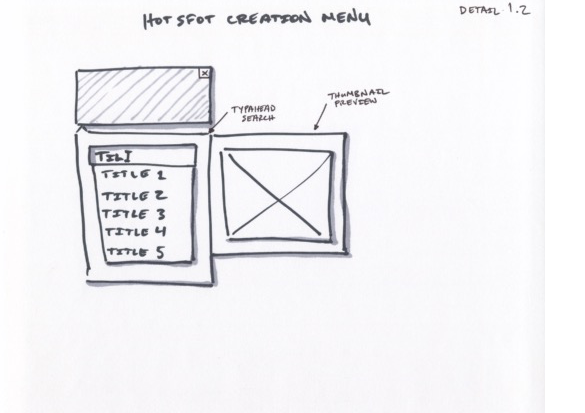 HOT SPOT CREATION MENU
DETAIL 1.2
X
TYPAHEAD
SEARCH
THUMBNAIL
PREVIEW
TITLE 1
TITLE 2
TITLE 3
TITLE 4
TITLE 5